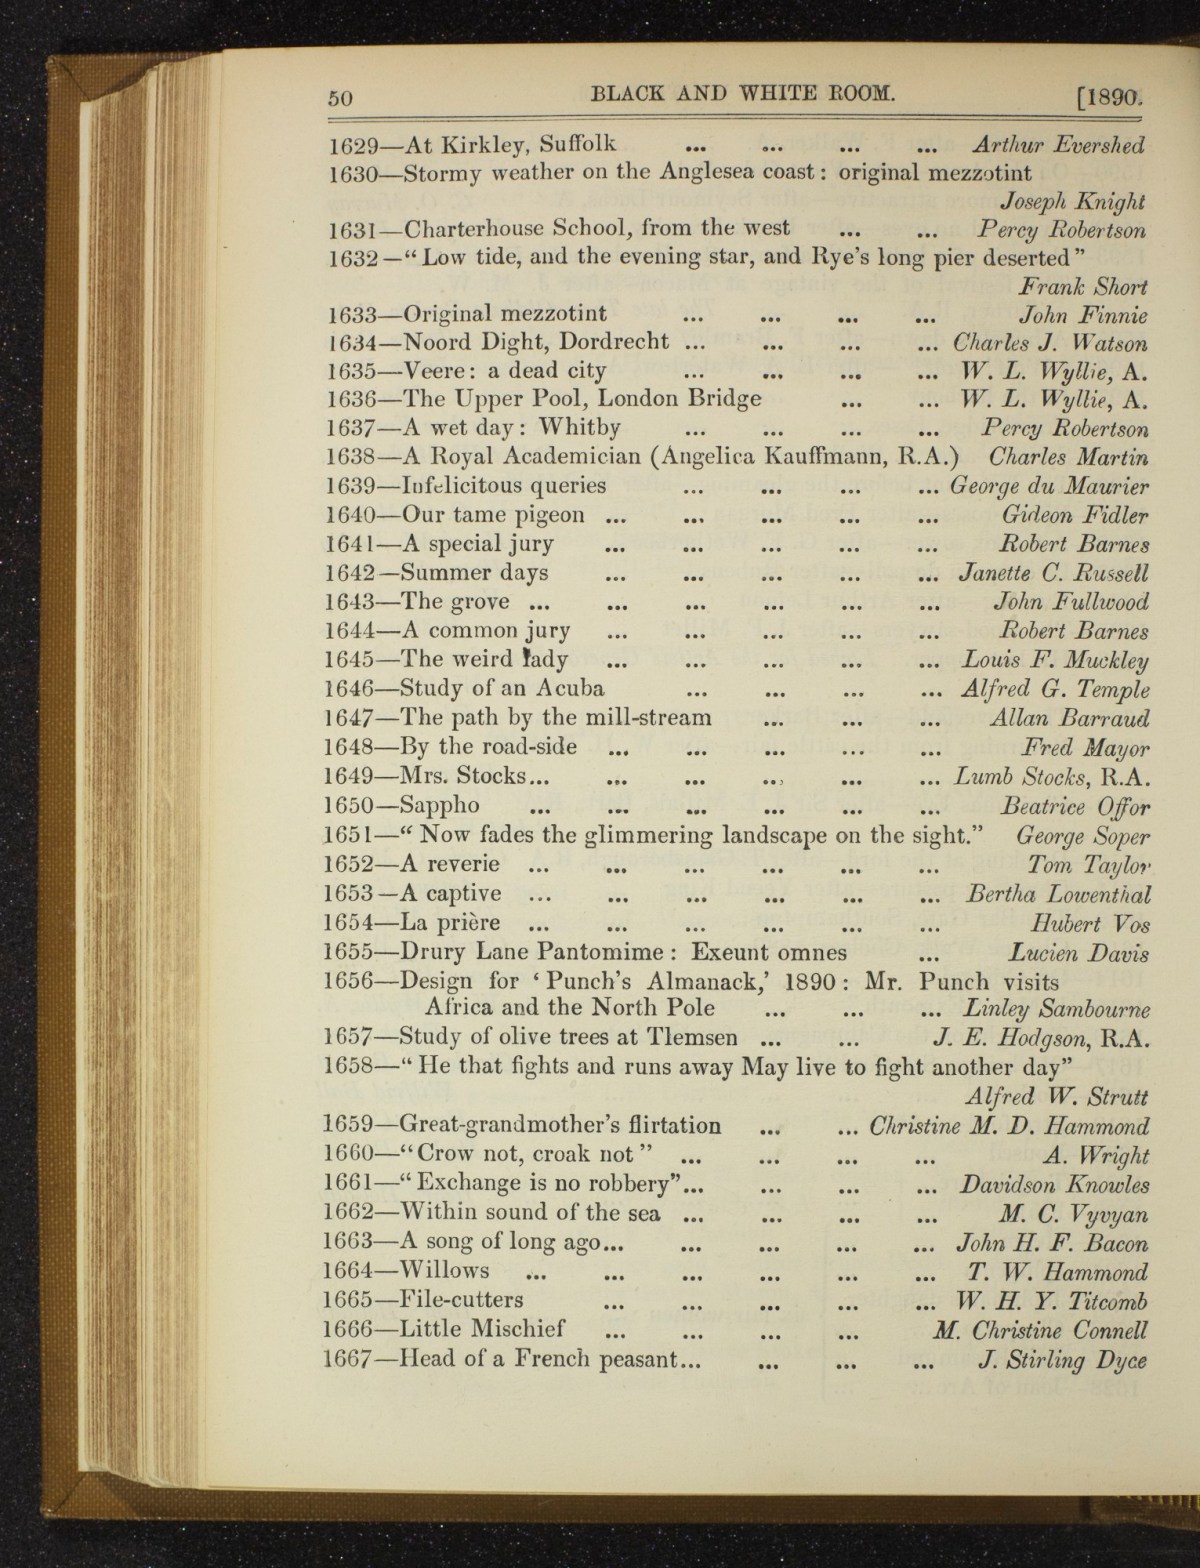 50 BLACK AND WHITE ROOM. [1890.
1629—At Kirkley, Suffolk ... ... ... ... Arthur Evershed
1630—Stormy weather on the Anglesea coast: original mezzotint
Joseph Knight
1631—Charterhouse School, from the west ... ... Percy Robertson
1632—“Low tide, and the evening star, and Rye’s long pier deserted”
Frank Short
1633—Original mezzotint ... ... ... ... John Finnie
1634—Noord Dight, Dordrecht ... ... ... ... Charles J. Watson
1635—Veere: a dead city ... ... ... ... W. L. Wyllie, A.
1636—The Upper Pool, London Bridge ... ... W. L. Wyllie, A.
1637—A wet day: Whitby ... ... ... ... Percy Robertson
1638—A Royal Academician (Angelica Kauffmann, R.A.) Charles Martin
1639—Infelicitous queries ... ... ... ... George du Maurier
1640—Our tame pigeon ... ... ... ... ... Gideon Fidler
1641—A special jury ... ... ... ... ... Robert Barnes
1642—Summer days ... ... ... ... ... Janette C. Russell
1643—The grove ... ... ... ... ... ... John Fullwood
1644—A common jury ... ... ... ... ... Robert Barnes
1645—The weird lady ... ... ... ... ... Louis F. Muckley
1646—Study of an Acuba ... ... ... ... Alfred G. Temple
1647—The path by the mill-stream ... ... ... Allan Barraud
1648—By the road-side ... ... ... ... ... Fred Mayor
1649—Mrs. Stocks... ... ... ... ... ... Lumb Stocks, R.A.
1650—Sappho ... ... ... ... ... ... Beatrice Offor
1651—“Now fades the glimmering landscape on the sight.” George Soper
1652—A reverie ... ... ... ... ... ... Tom Taylor
1653—A captive ... ... ... ... ... ... Bertha Lowenthal
1654—La prière ... ... ... ... ... ... Hubert Vos
1655—Drury Lane Pantomime: Exeunt omnes ... Lucien Davis
1656—Design for ‘Punch’s Almanack,’ 1890: Mr. Punch visits
Africa and the North Pole ... ... ... Linley Sambourne
1657—Study of olive trees at Tlemsen ... ... J. E. Hodgson, R.A.
1658—“He that fights and runs away May live to fight another day”
Alfred W. Strutt
1659—Great-grandmother’s flirtation ... ... Christine M. D. Hammond
1660—“Crow not, croak not” ... ... ... ... A. Wright
1661—“Exchange is no robbery”... ... ... ... Davidson Knowles
1662—Within sound of the sea ... ... ... ... M. C. Vyvyan
1663—A song of long ago... ... ... ... ... John H. F. Bacon
1664—Willows ... ... ... ... ... ... T. W. Hammond
1665—File-cutters ... ... ... ... ... W. H. Y. Titcomb
1666—Little Mischief ... ... ... ... M. Christine Connell
1667—Head of a French peasant... ... ... ... J. Stirling Dyce